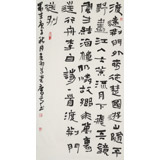 渡遠荊門外來從楚國遊山隨
平野盡江入大荒流月下飛天
鏡雲生結海樓仍憐故鄉水萬里
送行舟李白詩一首渡荊門
送別